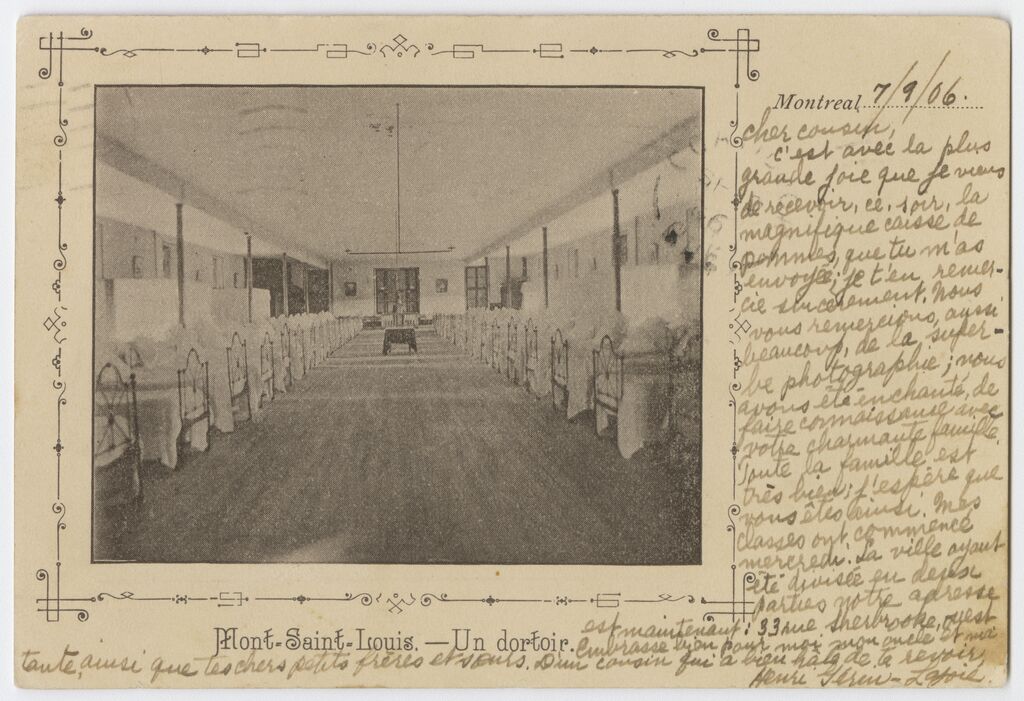 Montreal, 7/9/06.
Cher cousin,
c'est avec la plus
grande joie que je viens
de recevoir, ce, soir, la
magnifique caisse de
pommes, que tu m'as
envoyée; je t'en remer-
cie sincèrement. Nous
vous remercions, aussi
beaucoup, de la super-
be photographie; nous
avons été enchantés, de
faire connaissance avec
votre charmante famille.
Toute la famille est
très bien; j'espère que
vous êtes ainsi. Mes
classes ont commencé
mercredi. La ville ayant
été divisée en deux
parties notre adresse
est maintenant: 33 rue Sherbrooke, ouest
Embrasse bien pour moi mon oncle et ma
tante, ainsi que tes chers petits frères et sœurs. D'un cousin qui a bien hâte de te revoir,
Henri Gérin-Lajoie.
Mont-Saint-Louis. — Un dortoir.